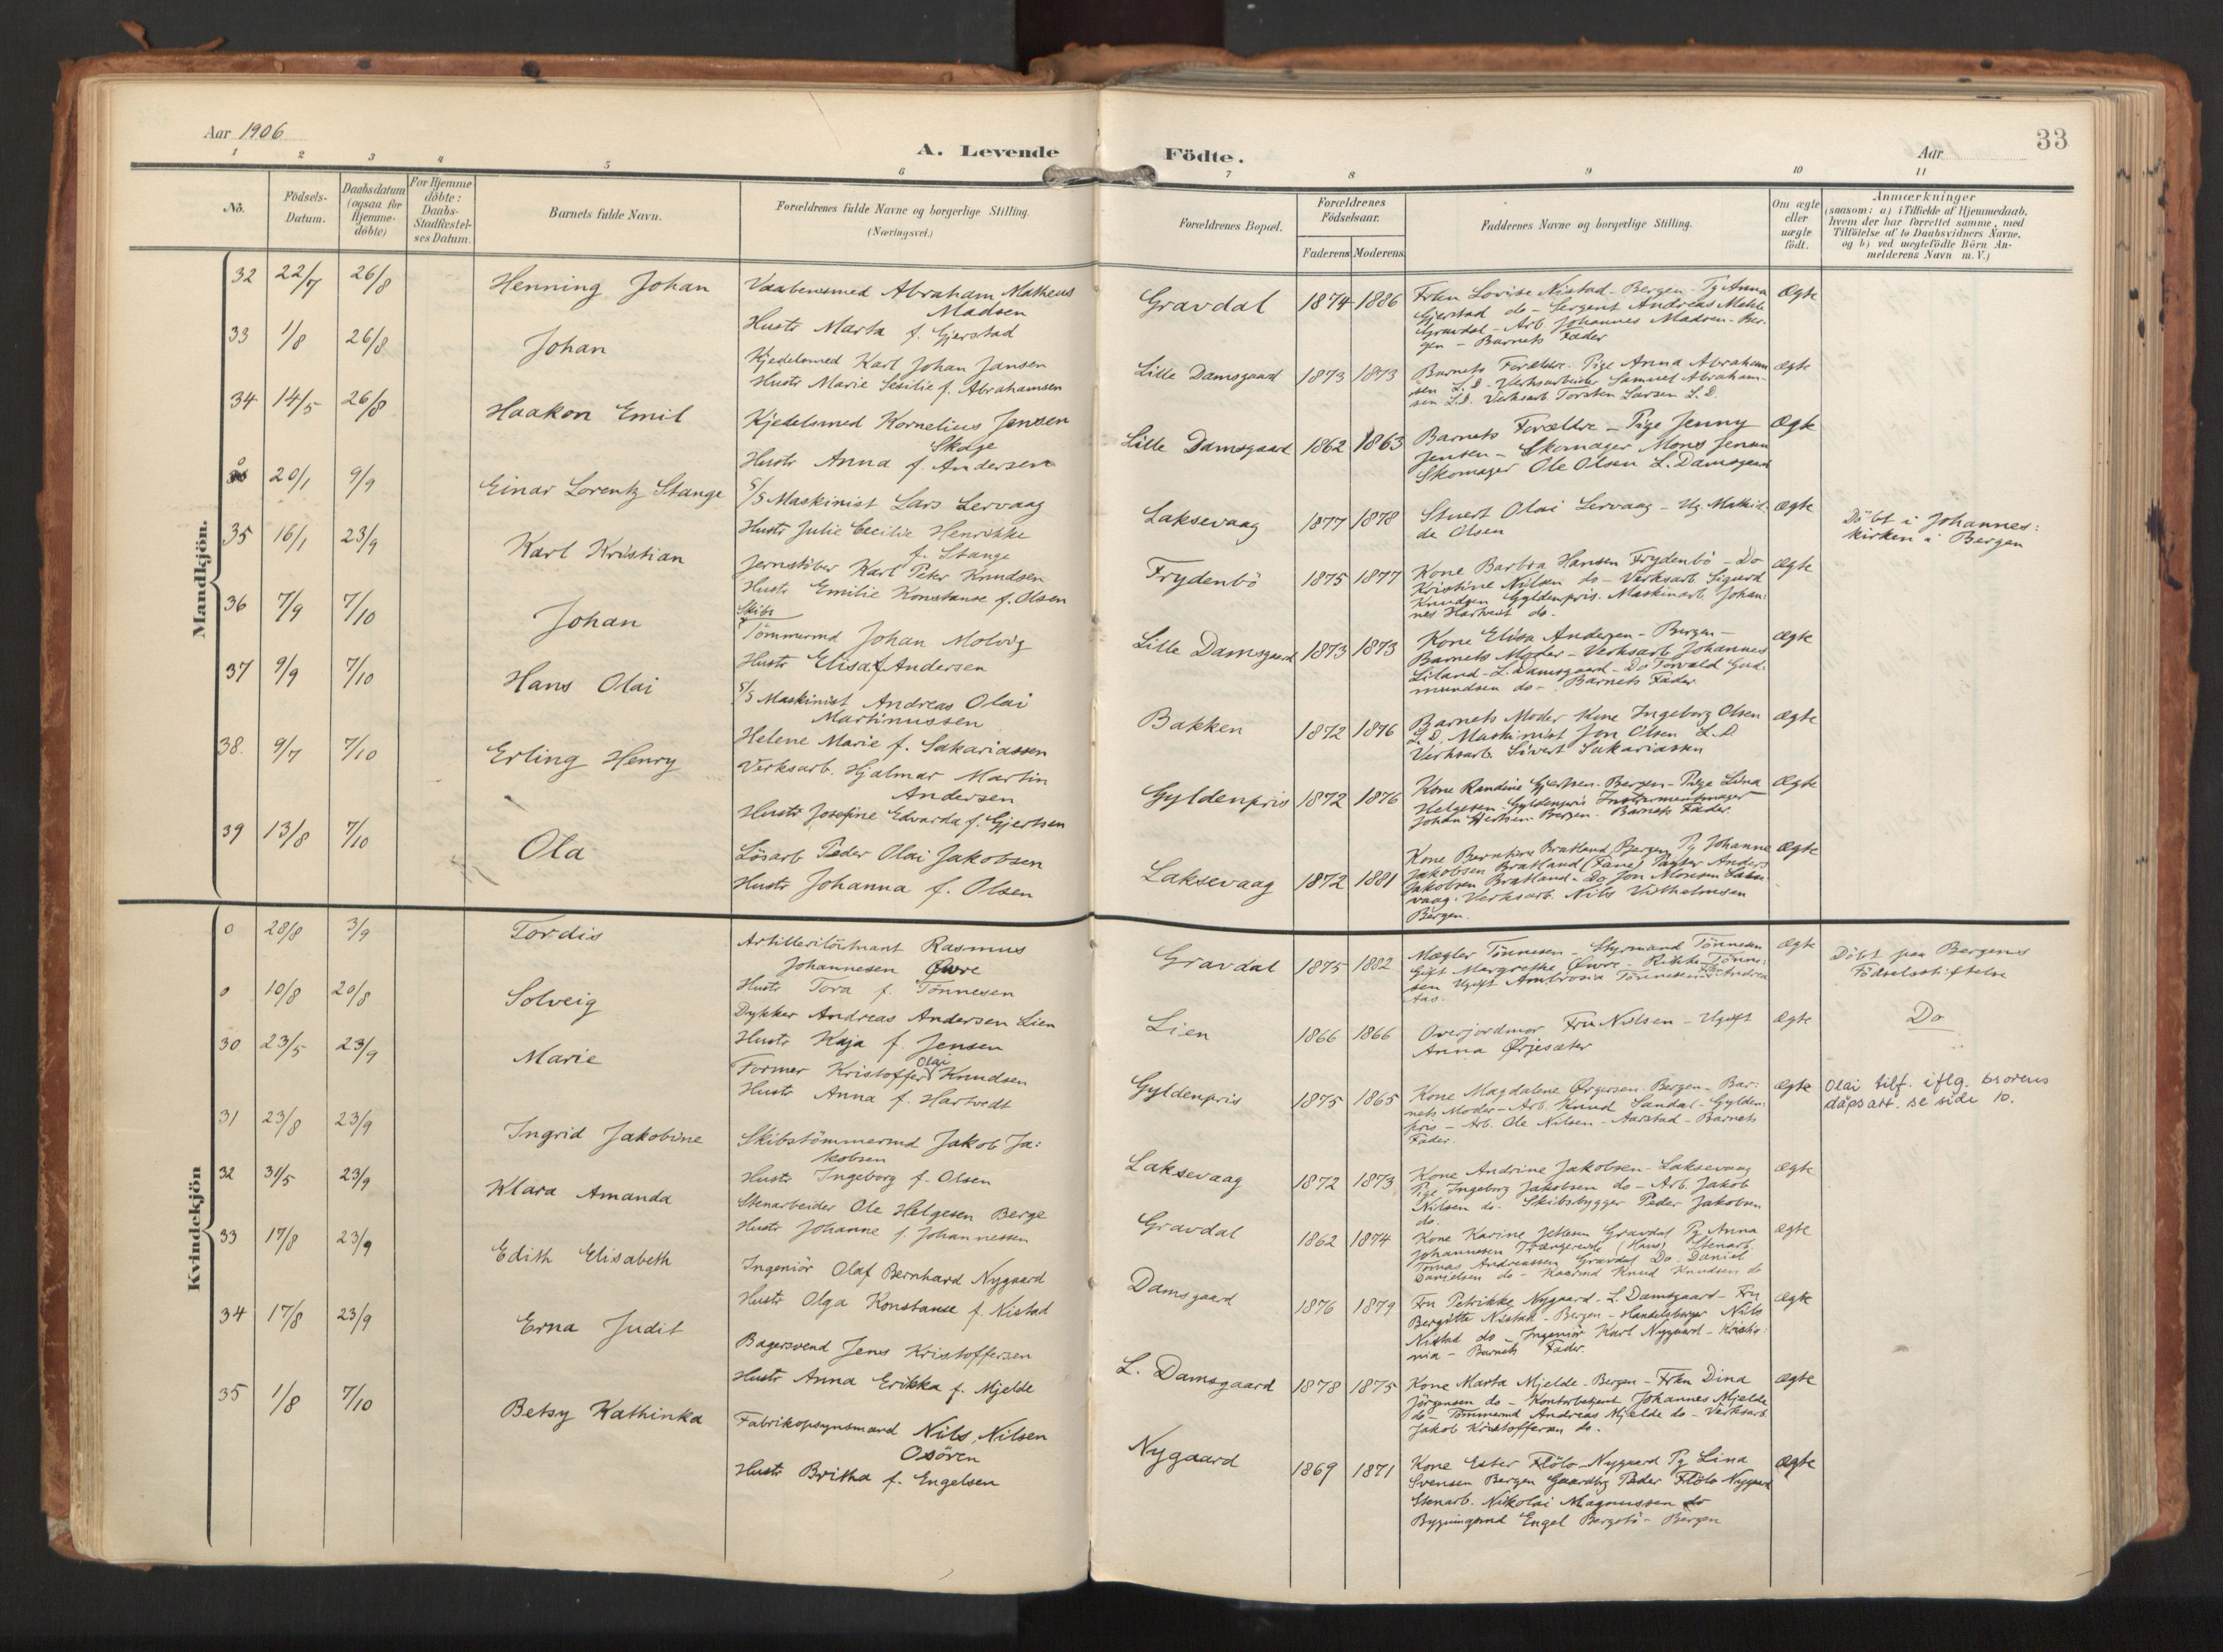 Aar 1906
A. Levende Födte.
Aar
33
1 2 3 4 5 6 7 8 9 10 11
No.
Födsels-Datum.
Daabsdatum (ogsaa for Hjemme-döbte)
For Hjemme döbte: Daabs-Stadfæstel-ses Datum.
Barnets fulde Navn.
Forældrenes fulde Navne og borgerlige Stilling.
(Næringsvei.)
Forældrenes Bopæl.
Forældrenes Födselsaar.
Faderens Moderens
Faddernes Navne og borgerlige Stilling.
Om ægte eller uægte födt.
Anmærkninger
(saasom: a) i Tilfælde af Hjemmedaab,
hvem der har forrettet samme, med
Tilföielse af to Daabsvidners Navne,
og b) ved uægtefödte Börn An-
melderens Navn m.V.)
Mandkjön.
32 22/7 26/8 Henning Johan
Vaabensmed Abraham Matheus
Madsen
Hustr Marta f. Gjerstad
Gravdal 1874 1886
Frkn Lovise Nistad - Bergen - Pg Anna
Gjerstad do - Sergent Andreas
Gravdal - Arb. Johannes Madsen - Ber-
gen - Barnets Fader
Ægte
33 1/8 26/8 Johan
Kjedelsmed Karl Johan Jansen
Hustr Marie Sesilie f. Abrahamsen
Lille Damsgaard 1873 1873
Barnets Forældre. Pige Anna Abraham
sen L.D. - Verksarbeider Samuel Abraham-
sen L.D. Verksarb Torsten Larsen L.D.
ægte
34 14/5 26/8 Haakon Emil
Kjedelsmed Kornelius Jensen
Skage
Hustr Anna f. Andersen
Lille Damsgaard 1862 1863
Barnets Forældre - Pige Jenny
Jensen - Skomager Mons Jensen
Skomager Ole Olsen L. Damsgaard
Ægte
0 20/1 9/9 Einar Lorentz Stange
S/S Maskinist Lars Lervaag
Hustr Julie Cecilie Henrikke
f. Stange
Laksevaag 1877 1878
Stuert Olai Lervaag - Ug. Mathil-
de Olsen
ægte
Döbt i Johannes:
kirken i Bergen
35 16/1 23/9 Karl Kristian
Jernstöber Karl Peter Knudsen
Hustr Emilie Konstanse f. Olsen
Frydenbö 1875 1877
Kone Barbra Hansen Frydenbö - Do
Kristine Nilsen do - Verksarb Sigurd
Knudsen Gyldenpris. Maskinarb Johan:
nes Hartvedt do.
ægte
36 7/9 7/10 Johan
Skibs
Tömmermd Johan Molvig
Hustr Elisa f. Andersen
Lille Damsgaard 1873 1873
Kone Elisa Andersen - Bergen -
Barnets Moder - Verksarb Johannes
Liland - L. Damsgaard - Do Torvald Gud-
mundsen do - Barnets Fader
ægte
37 9/9 7/10 Hans Olai
S/S Maskinist Andreas Olai
Martinussen
Helene Marie f. Sakariassen
Bakken 1872 1876
Barnets Moder Kone Ingeborg Olsen
L.D. Maskinist Jon Olsen L.D
Verksarb. Sivert Sakariassen
ægte
38. 9/7 7/10 Erling Henry
Verksarb. Hjalmar Martin
Andersen
Hustr Josefine Edvarda f. Gjertsen
Gyldenpris 1872 1876
Kone Randine Gjertsen - Bergen - Pige Lina
Helgesen - Gyldenpris Instrumentmager
Johan Gjertsen Bergen. Barnets Fader.
Ægte
39 13/8 7/10 Ola
Lösarb Peder Olai Jakobsen
Hustr Johanna f. Olsen
Laksevaag 1872 1881
Kone Berntine Bratland Bergen Pg Johanne
Jakobsen Bratland (Fane) Anders
Jakobsen Bratland - Do Jon Monsen Lakse-
vaag. Verksarb. Nils Vilhelmsen
Bergen.
Ægte
Kvindekjön
0 28/8 3/9 Tordis
Artilleriløitnant Rasmus
Johannesen Øvre
Hustr Tora f. Tönnesen
Gravdal 1875 1882
Mægler Tönnesen - Styrmand Tönnesen
Gift Margrethe Øvre - Rikke Tönne:
sen Ugift Ambrosia Tönnesen
ægte
Döbt paa Bergens
Födselsstiftelse
0 10/8 20/8 Solveig
Dykker Andreas Andersen Lien
Hustr Kaja f. Jensen
Lien 1866 1866
Overjordmor Fru Nilsen - Ugift
Anna Ørjesæter
Ægte
Do
30 23/5 23/9 Marie
Olai
Former Kristoffer Knudsen
Hustr Anna f. Hartvedt
Gyldenpris 1875 1865
Kone Magdalene Bergen - Bar:
nets Moder - Arb. Knud Sandal - Gylden:
pris - Arb. Ole Nilsen - Aarstad - Barnets
Fader.
ægte
Olai tilf. iflg. brorens
dåpsatt. se side 10.
31 23/8 23/9 Ingrid Jakobine
Skibstömmermd Jakob Ja:
kobsen
Hustr Ingeborg f. Olsen
Laksevaag 1872 1873
Kone Andrine Jakobsen - Laksevaag
Pige Ingeborg Jakobsen do - Arb. Jakob
Nilsen do - Skibsbygger Peder Jakobsen
do.
ægte
32 31/5 23/9 Klara Amanda
Stenarbeider Ole Helgesen Berge
Hustr Johanne f. Johannessen
Gravdal 1862 1874
Kone Karine Gravdal Pg Anna
Johannesen (Hans) Stenarb.
Tomas Andreassen Gravdal Do - Daniel
Danielsen do - Knud Knudsen do
ægte
33 17/8 23/9 Edith Elisabeth
Ingeniör Olaf Bernhard Nygaard
Hustr Olga Konstanse f. Nistad
Damsgaard 1876 1879
Fru Petrikke Nygaard - L. Damsgaard - Fru
Bergitte Nistad - Bergen - Handelsborger Nils
Nistad do - Ingeniör Karl Nygaard - Kristia:
nia - Barnets Fader.
Ægte
34 17/8 23/9 Erna Judit
Bagersvend Jens Kristoffersen
Hustr Anna Erikka f. Mjelde
L. Damsgaard 1878 1875
Kone Marta Mjelde - Bergen - Frkn Dina
Jörgensen do - Kontorbetjent Johannes Mjelde
do - Tömmermd Andreas Mjelde do - Verksarb
Jakob Kristoffersen do.
ægte
35 1/8 7/10 Betsy Kathinka
Fabrikopsynsmand Nils Nilsen
Osören
Hustr Britha f. Engelsen
Nygaard 1869 1871
Kone Ester Flölo - Nygaard Pg Lina
Svensen Bergen Gaardbg Peder Flölo Nygaard
Stenarb. Nikolai Magnussen do
Bygningsmd Engel Bergen
ægte